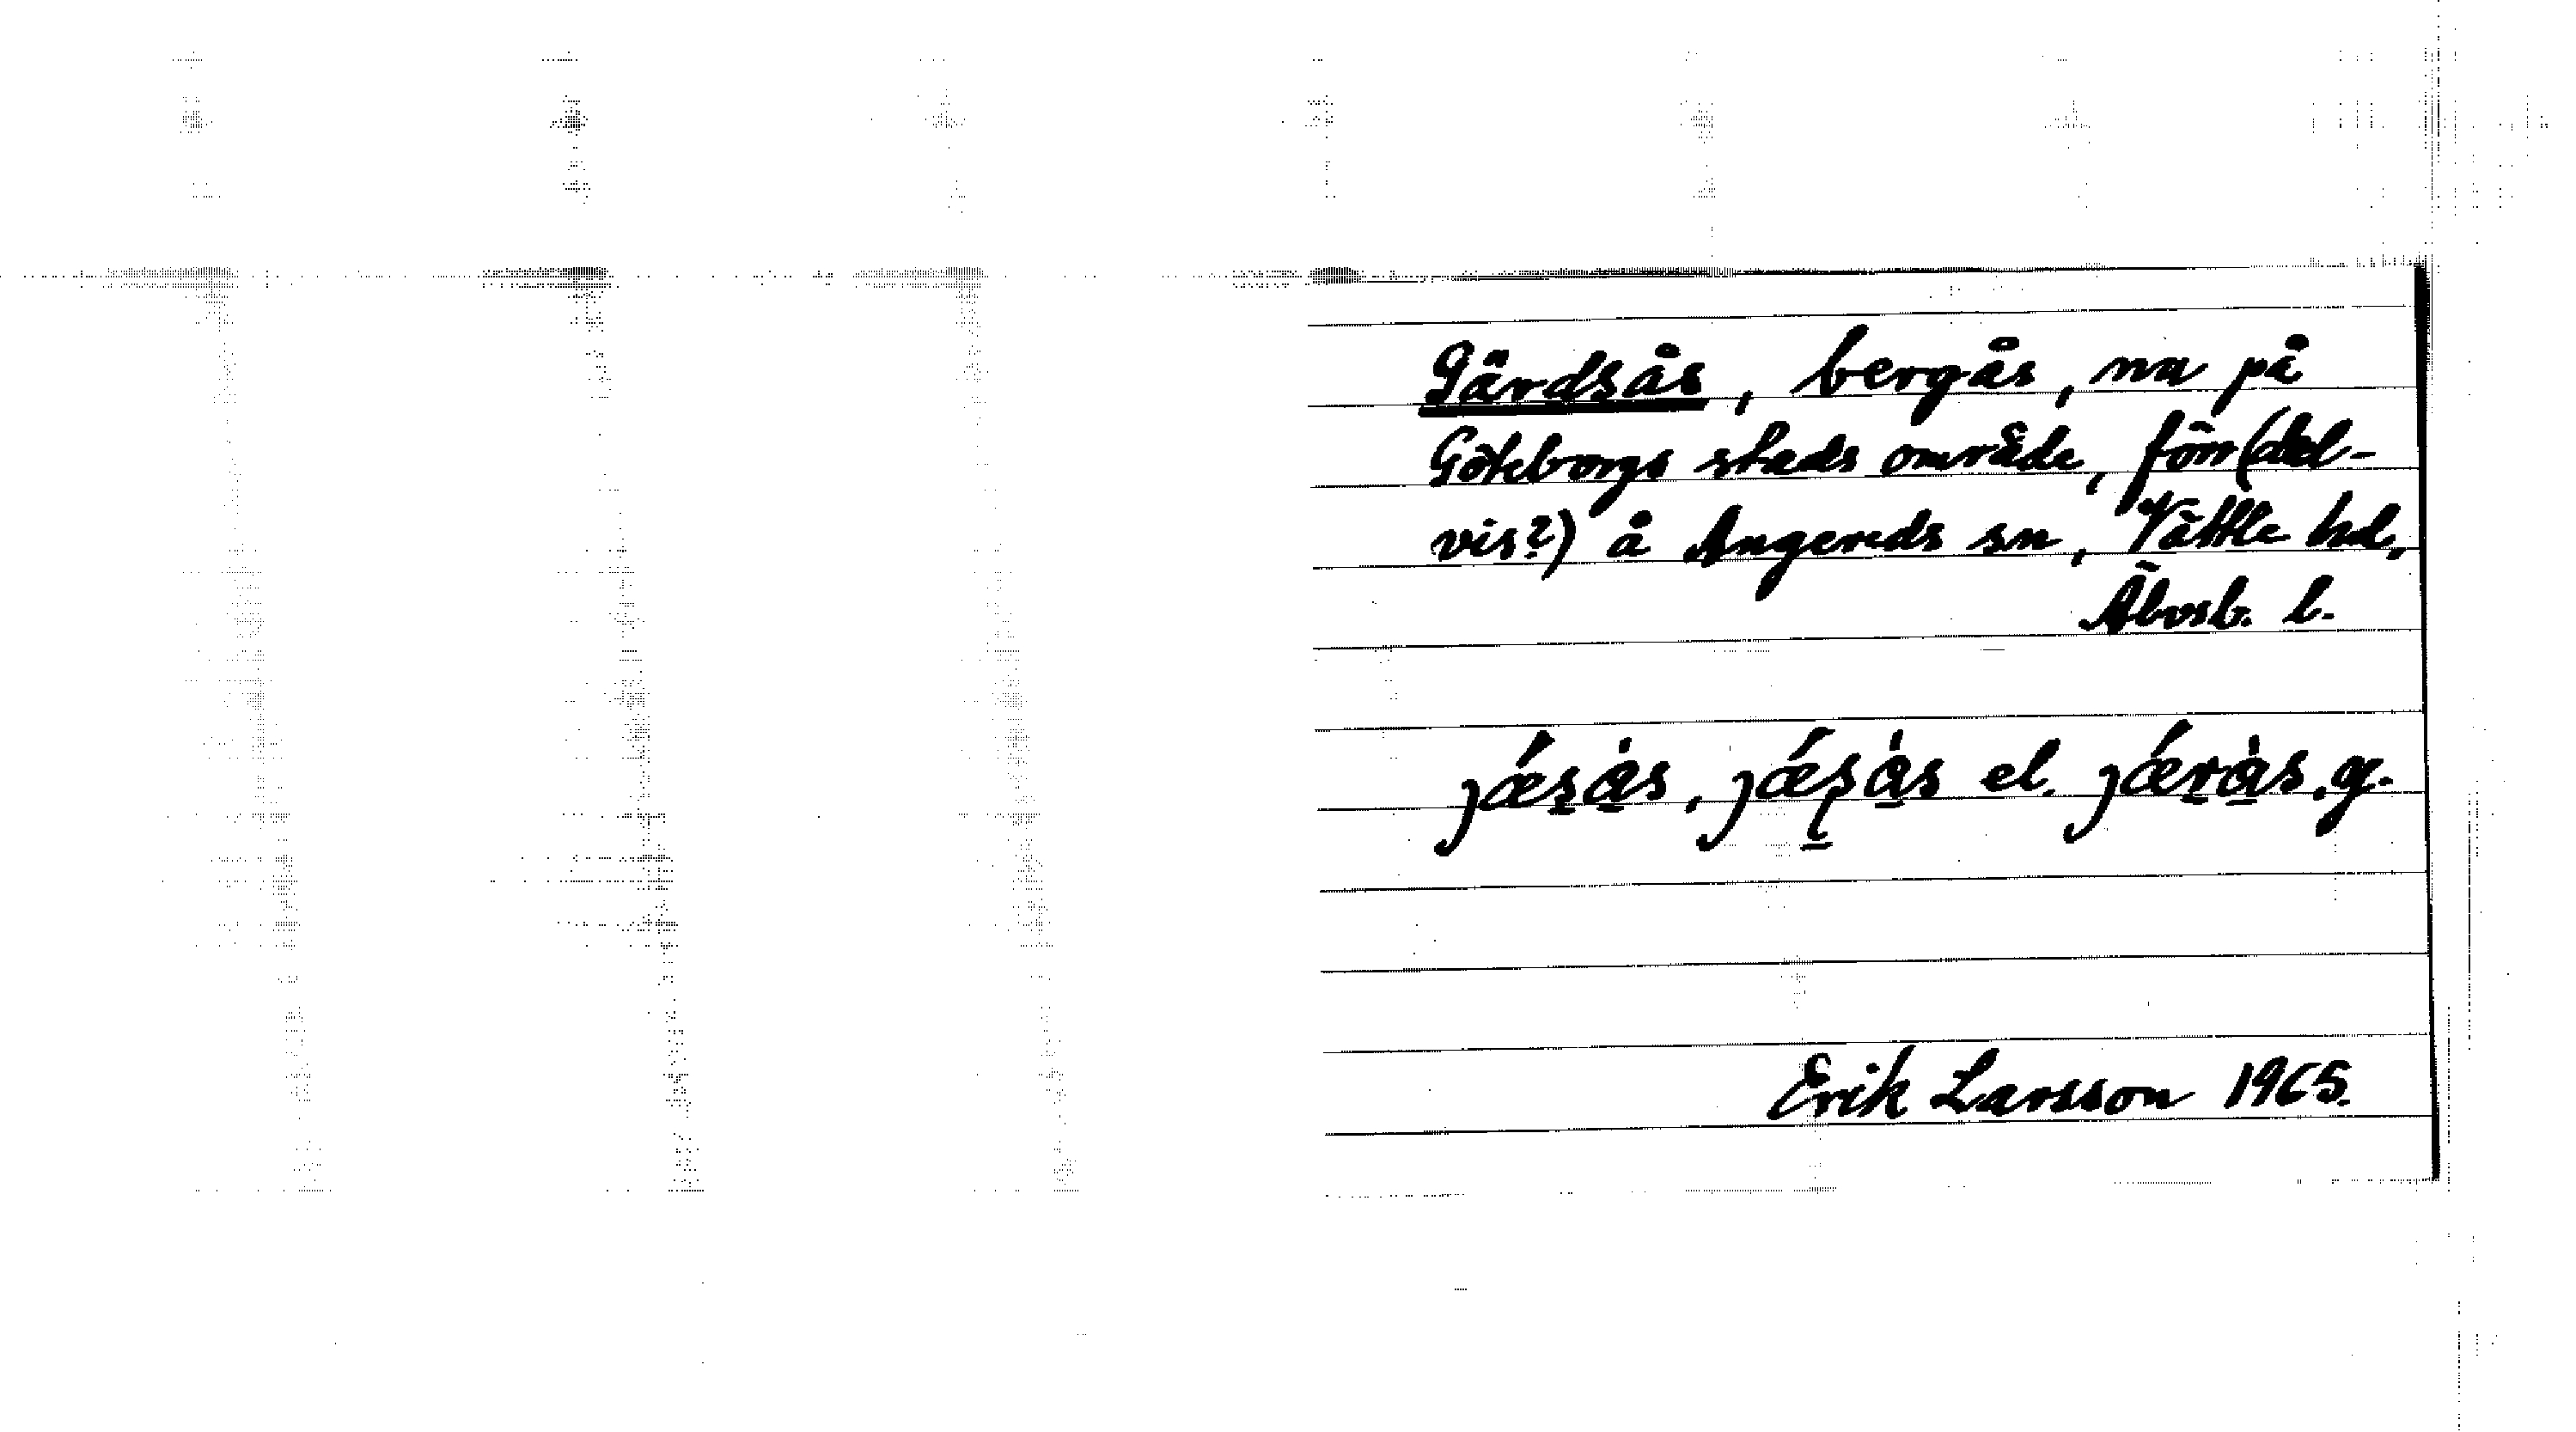 Gärdsås, bergås, nu på
Göteborgs stads område, förr (del-
vis?) å Angereds sn, Vättle hd,
Älvsb. l.
ȷǽs̠å̠̀s, ȷǽʂ̠å̠̀s el. ȷǽr̠å̠̀s. g.
Erik Larsson 1965.